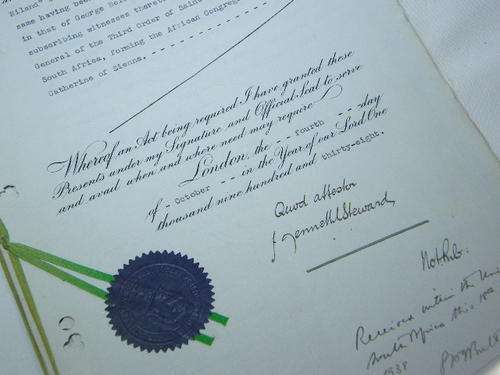 Bilans"
same having been
in that of George Bell
subscribing witnesses thereto
General of the Third Order of Saint
South Africa, forming the African Congreg
Catherine of Sienna.
Whereof an Act being required I have granted these
Presents under my Signature and Official Seal to serve
and avail when and where need may require
London, the - - fourth - - - day
of - October - - in the Year of our Lord One
thousand nine hundred and thirty-eight.
Quod attestor
Kenneth Steward
Not. Pub.
Received within the Union
South Africa this 18th
1938